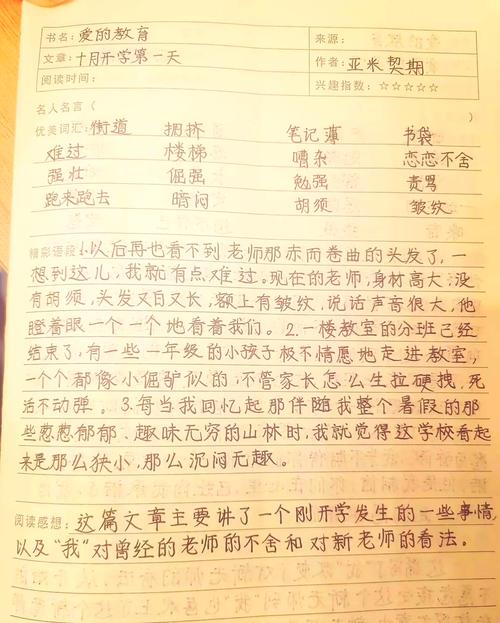 书名：爱的教育 来源：
文章：十月开学第一天 作者：亚米契期
阅读时间： 兴趣指数：☆☆☆☆☆
名人名言（ ）
优美词汇：街道 拥挤 笔记薄 书袋
难过 楼梯 嘈杂 恋恋不舍
强壮 倔强 勉强 责骂
跑来跑去 暗闷 胡须 皱纹
精彩语段：1.以后再也看不到老师那赤而卷曲的头发了，一
想到这儿，我就有点难过。现在的老师，身材高大，没
有胡须，头发又白又长，额上有皱纹，说话声音很大，他
瞪着眼一个一个地看着我们。2.一楼教室的分班已经
结束了，有一些一年级的小孩子极不情愿地走进教室，
一个个都像小倔驴似的，不管家长怎么生拉硬拽，死
活不动弹。3.每当我回忆起那伴随我整个暑假的那
些葱葱郁郁、趣味无穷的山林时，我就觉得这学校看起
来是那么狭小，那么沉闷无趣。
阅读感想：这篇文章主要讲了一个刚开学发生的一些事情，
以及“我”对曾经的老师的不舍和对新老师的看法。